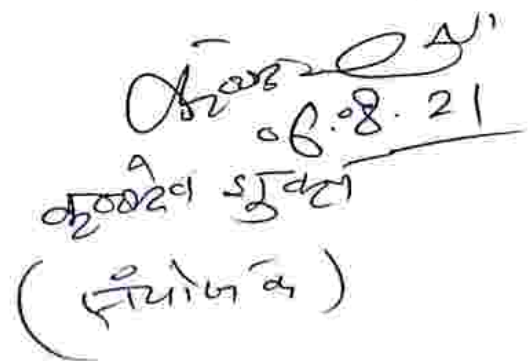 06.08.21
कृष्णदेव शुक्ला
(संयोजक)